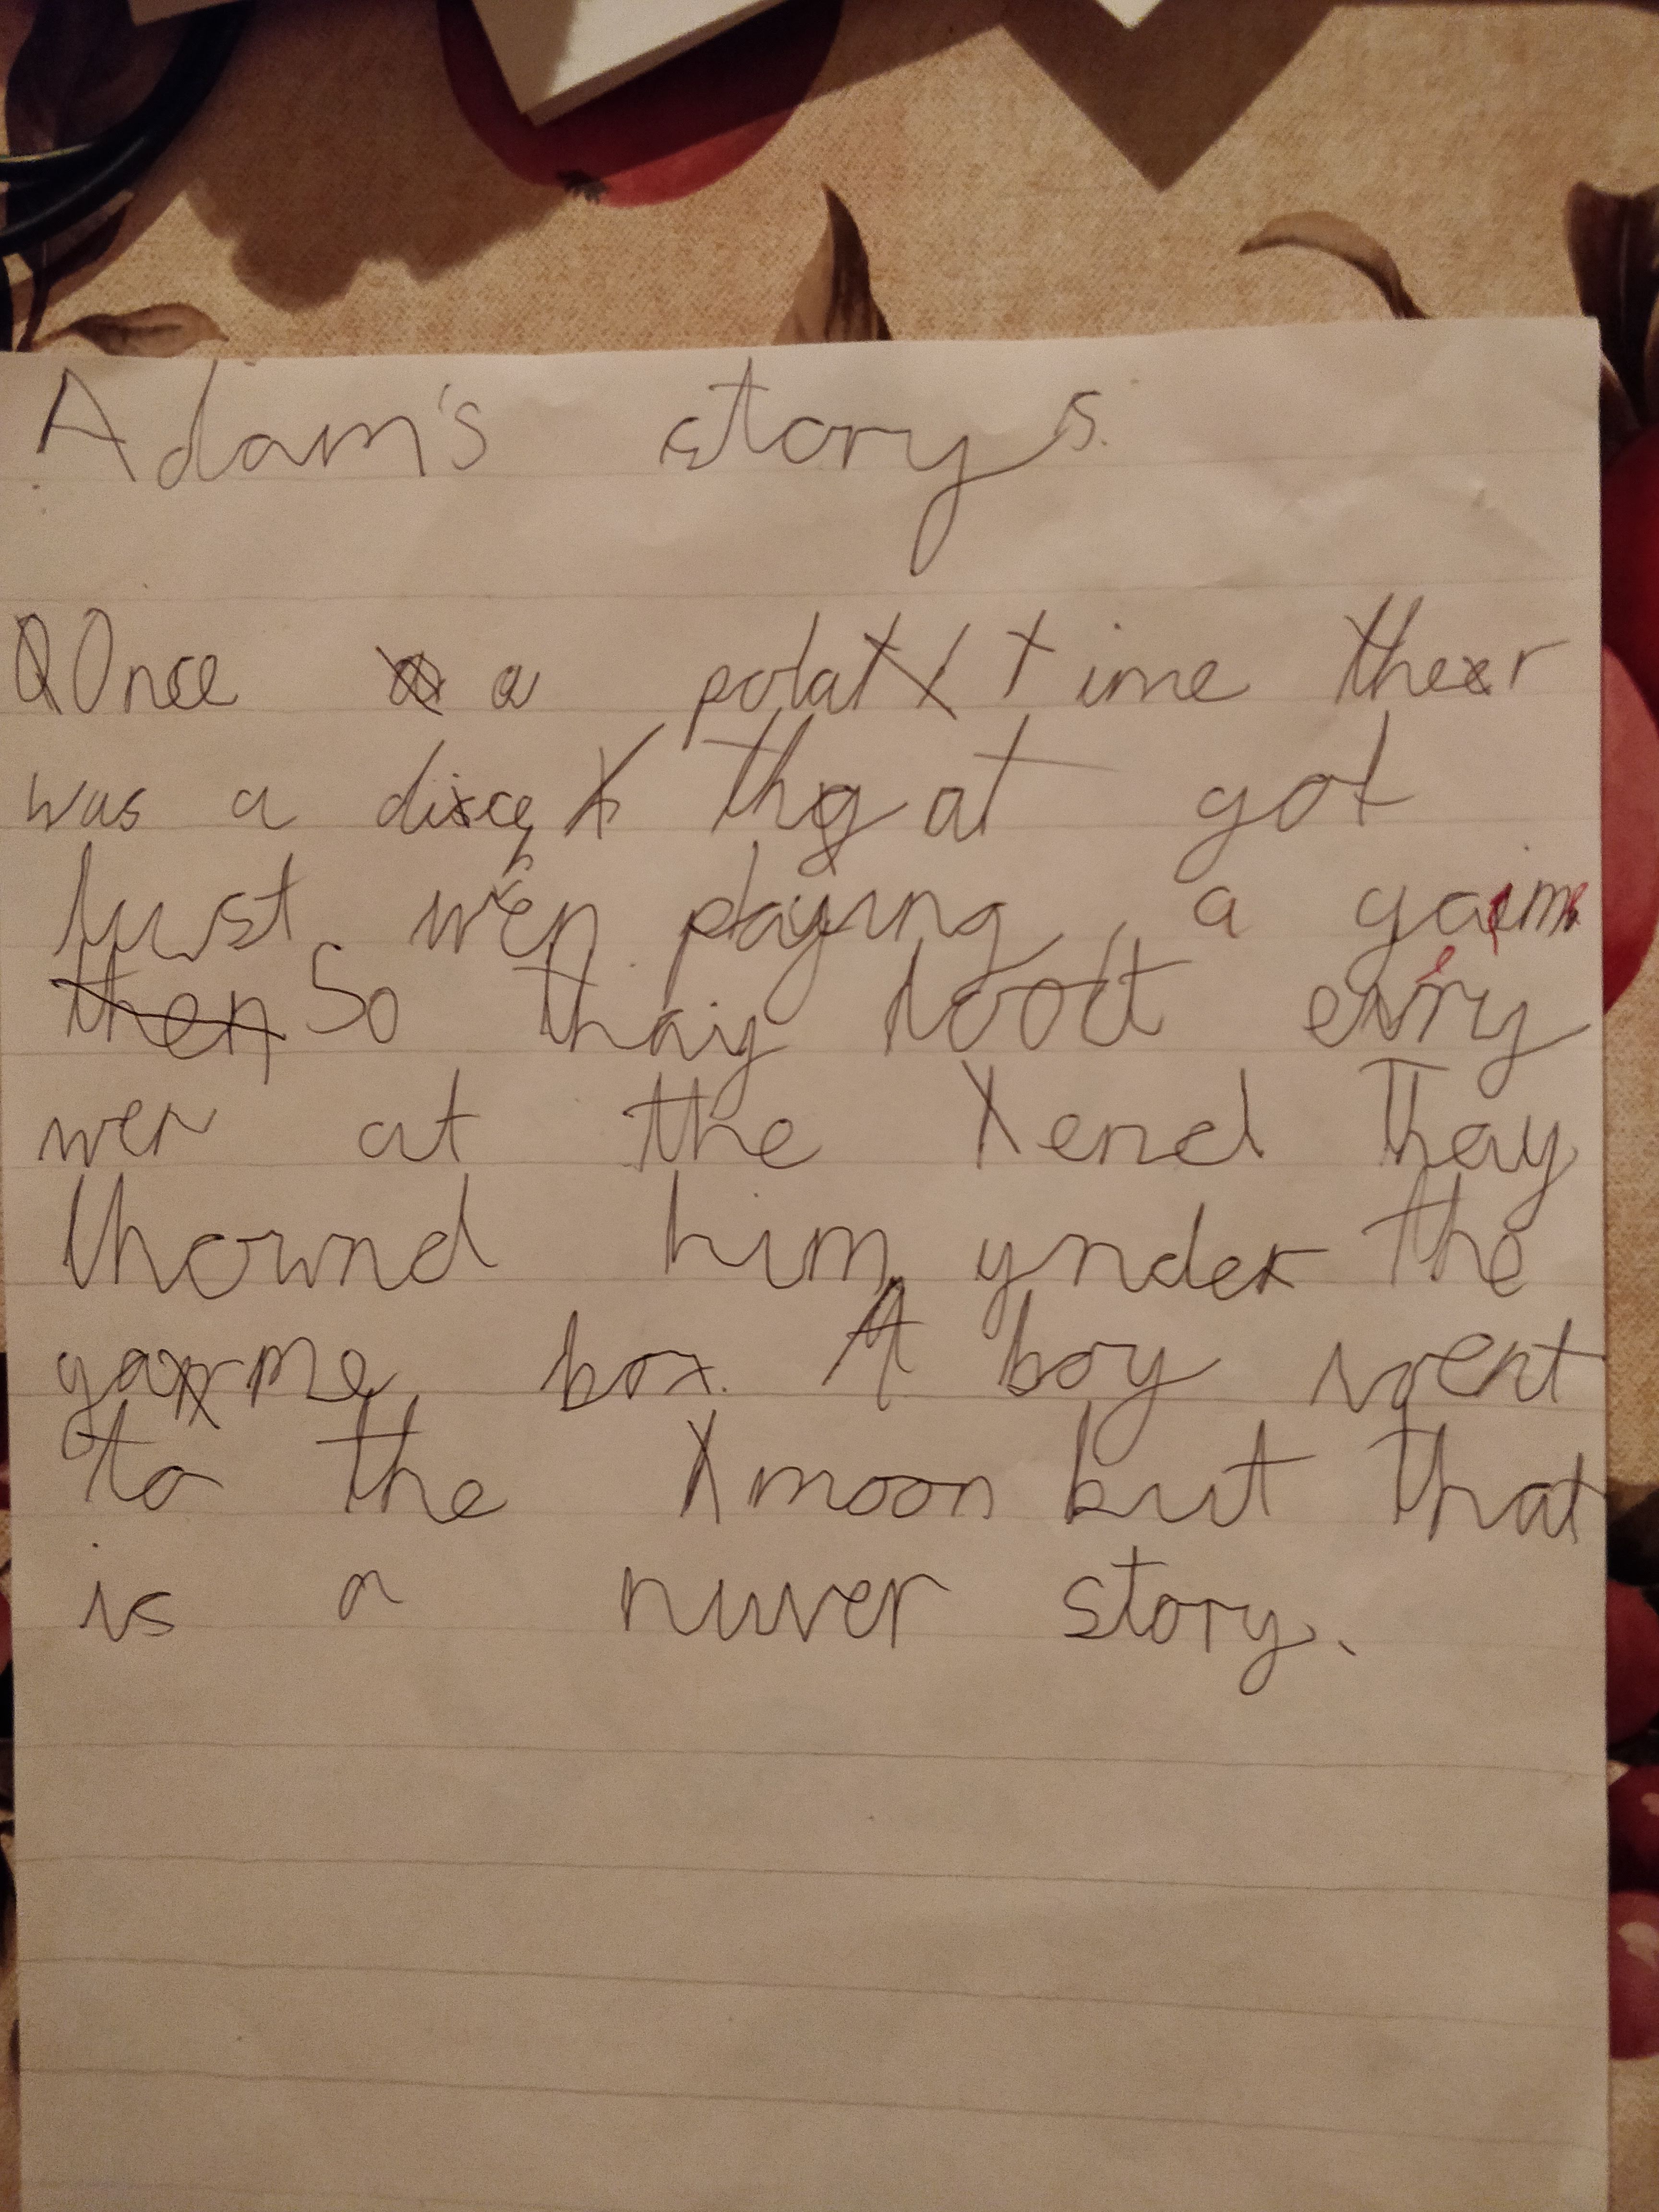 Adam's storys.
Once a polat time ther
was a dice that got
lust wen playing a game
So thay loockt evry
wer at the end Thay
fhownd him ynder the
game box. A boy went
to the moon but that
is a nuver story.